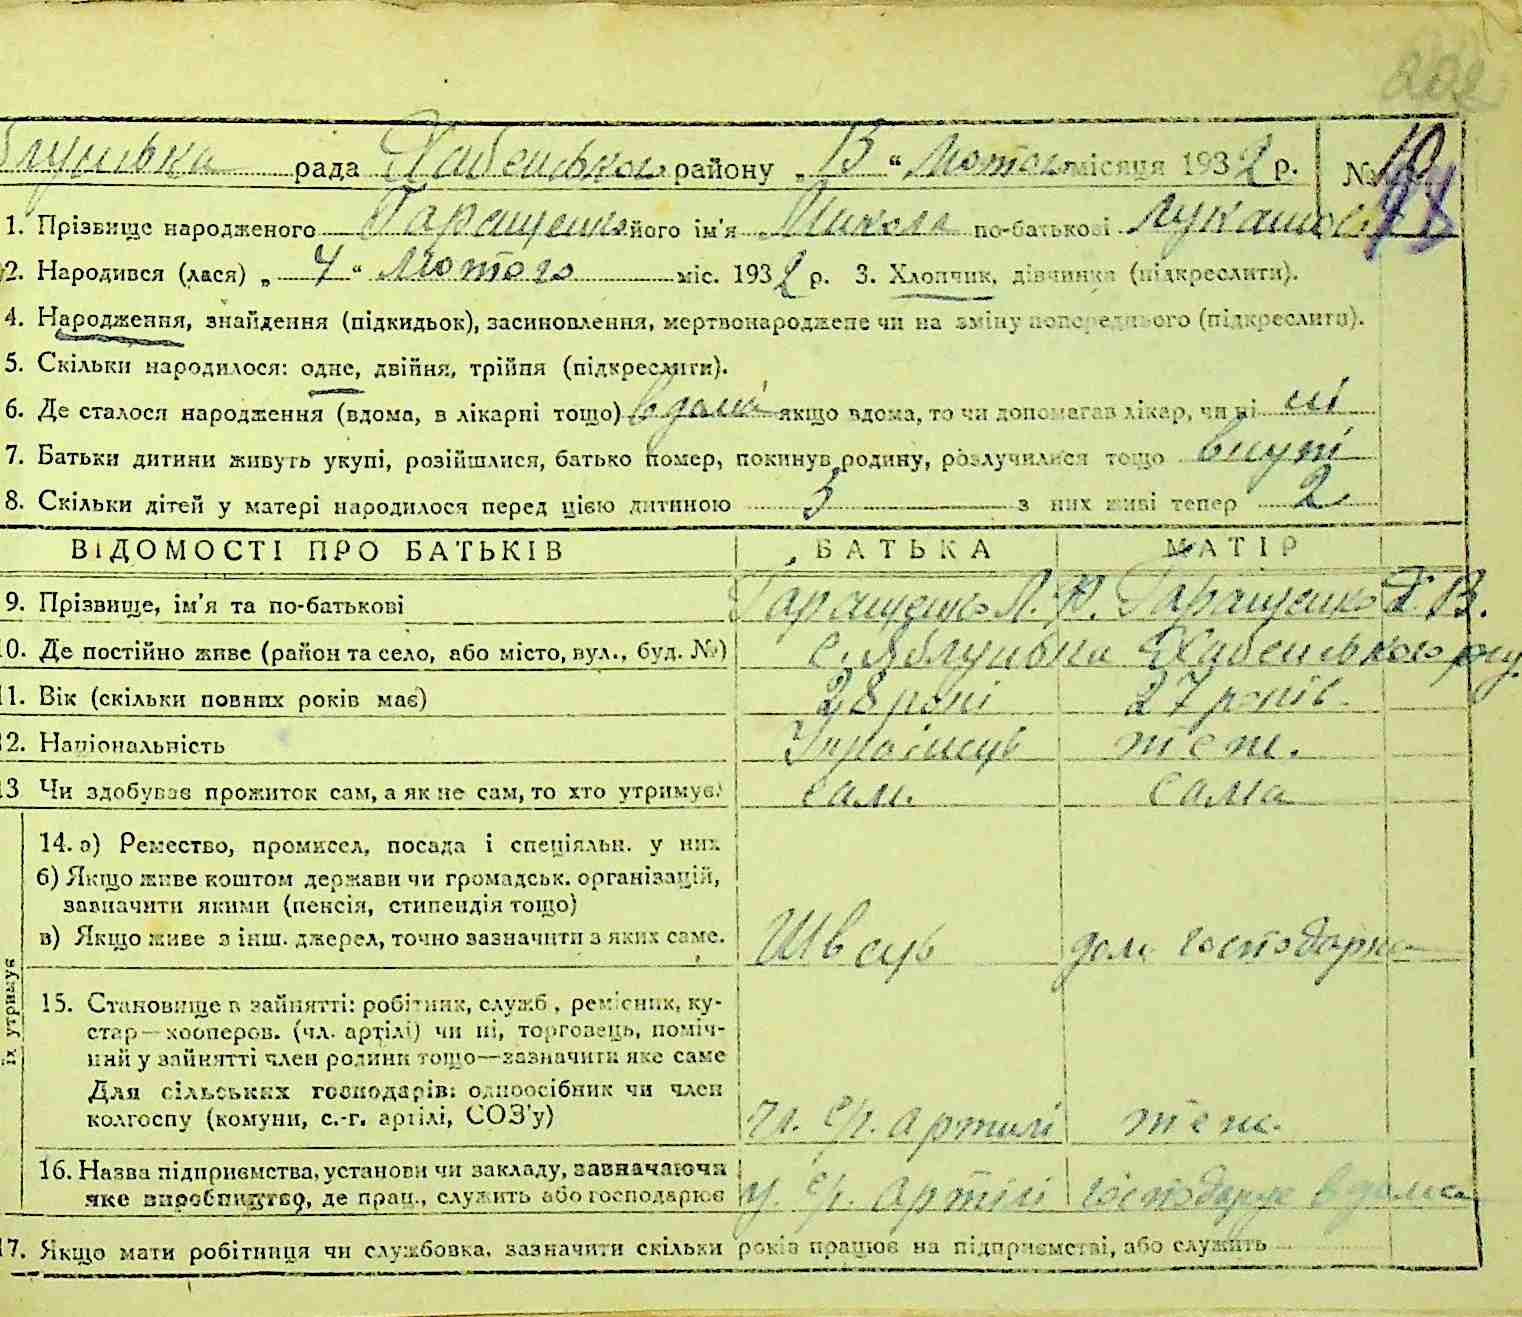 202
блунівка рада Хабенського району „ 15 “ лютого місяця 1932 р. № 10
1. Прізвище народженого Гаращенко його ім'я Микола по-батькові Лукашов
2. Народився (лася) „ 4 “ лютого міс. 1932 р. 3. Хлопчик, дівчинка (підкреслити).
4. Народження, знайдення (підкидьок), засиновлення, мертвонароджене чи на зміну попереднього (підкреслити).
5. Скільки народилося: одне, двійня, трійня (підкреслити).
6. Де сталося народження (вдома, в лікарні тощо) вдома якщо вдома, то чи допомагав лікар, чи ні ні
7. Батьки дитини живуть укупі, розійшлися, батько помер, покинув родину, розлучилися тощо вкупі
8. Скільки дітей у матері народилося перед цією дитиною 3 з них живі тепер 2
ВІДОМОСТІ ПРО БАТЬКІВ БАТЬКА МАТІР
9. Прізвище, ім'я та по-батькові Гаращенко Л. Ф. Гаращенко В.
10. Де постійно живе (район та село, або місто, вул., буд. №) с. Яблунівка Хабенського
11. Вік (скільки повних років має) 28 років 27 років.
12. Національність Українець теж.
13 Чи здобуває прожиток сам, а як не сам, то хто утримує? сам. сама
14. а) Ремество, промисел, посада і спеціяльн. у них
б) Якщо живе коштом держави чи громадськ. організацій,
зазначити якими (пенсія, стипендія тощо)
в) Якщо живе з інш. джерел, точно зазначити з яких саме. Швець дом. господарка
їх утримує
15. Становище в зайнятті: робітник, служб., ремісник, ку-
стар—кооперов. (чл. артілі) чи ні, торговець, поміч-
ний у зайнятті член родини тощо—зазначити яке саме
Для сільських господарів: одноосібник чи член
колгоспу (комуни, с.-г. артілі, СОЗ'у) чл. с/г. артилі теж.
16. Назва підприємства, установи чи закладу, зазначаючи
яке виробництво, де прац., служить або господарює у с/г. артілі господарює вдома
17. Якщо мати робітниця чи службовка, зазначити скільки років працює на підприємстві, або служить